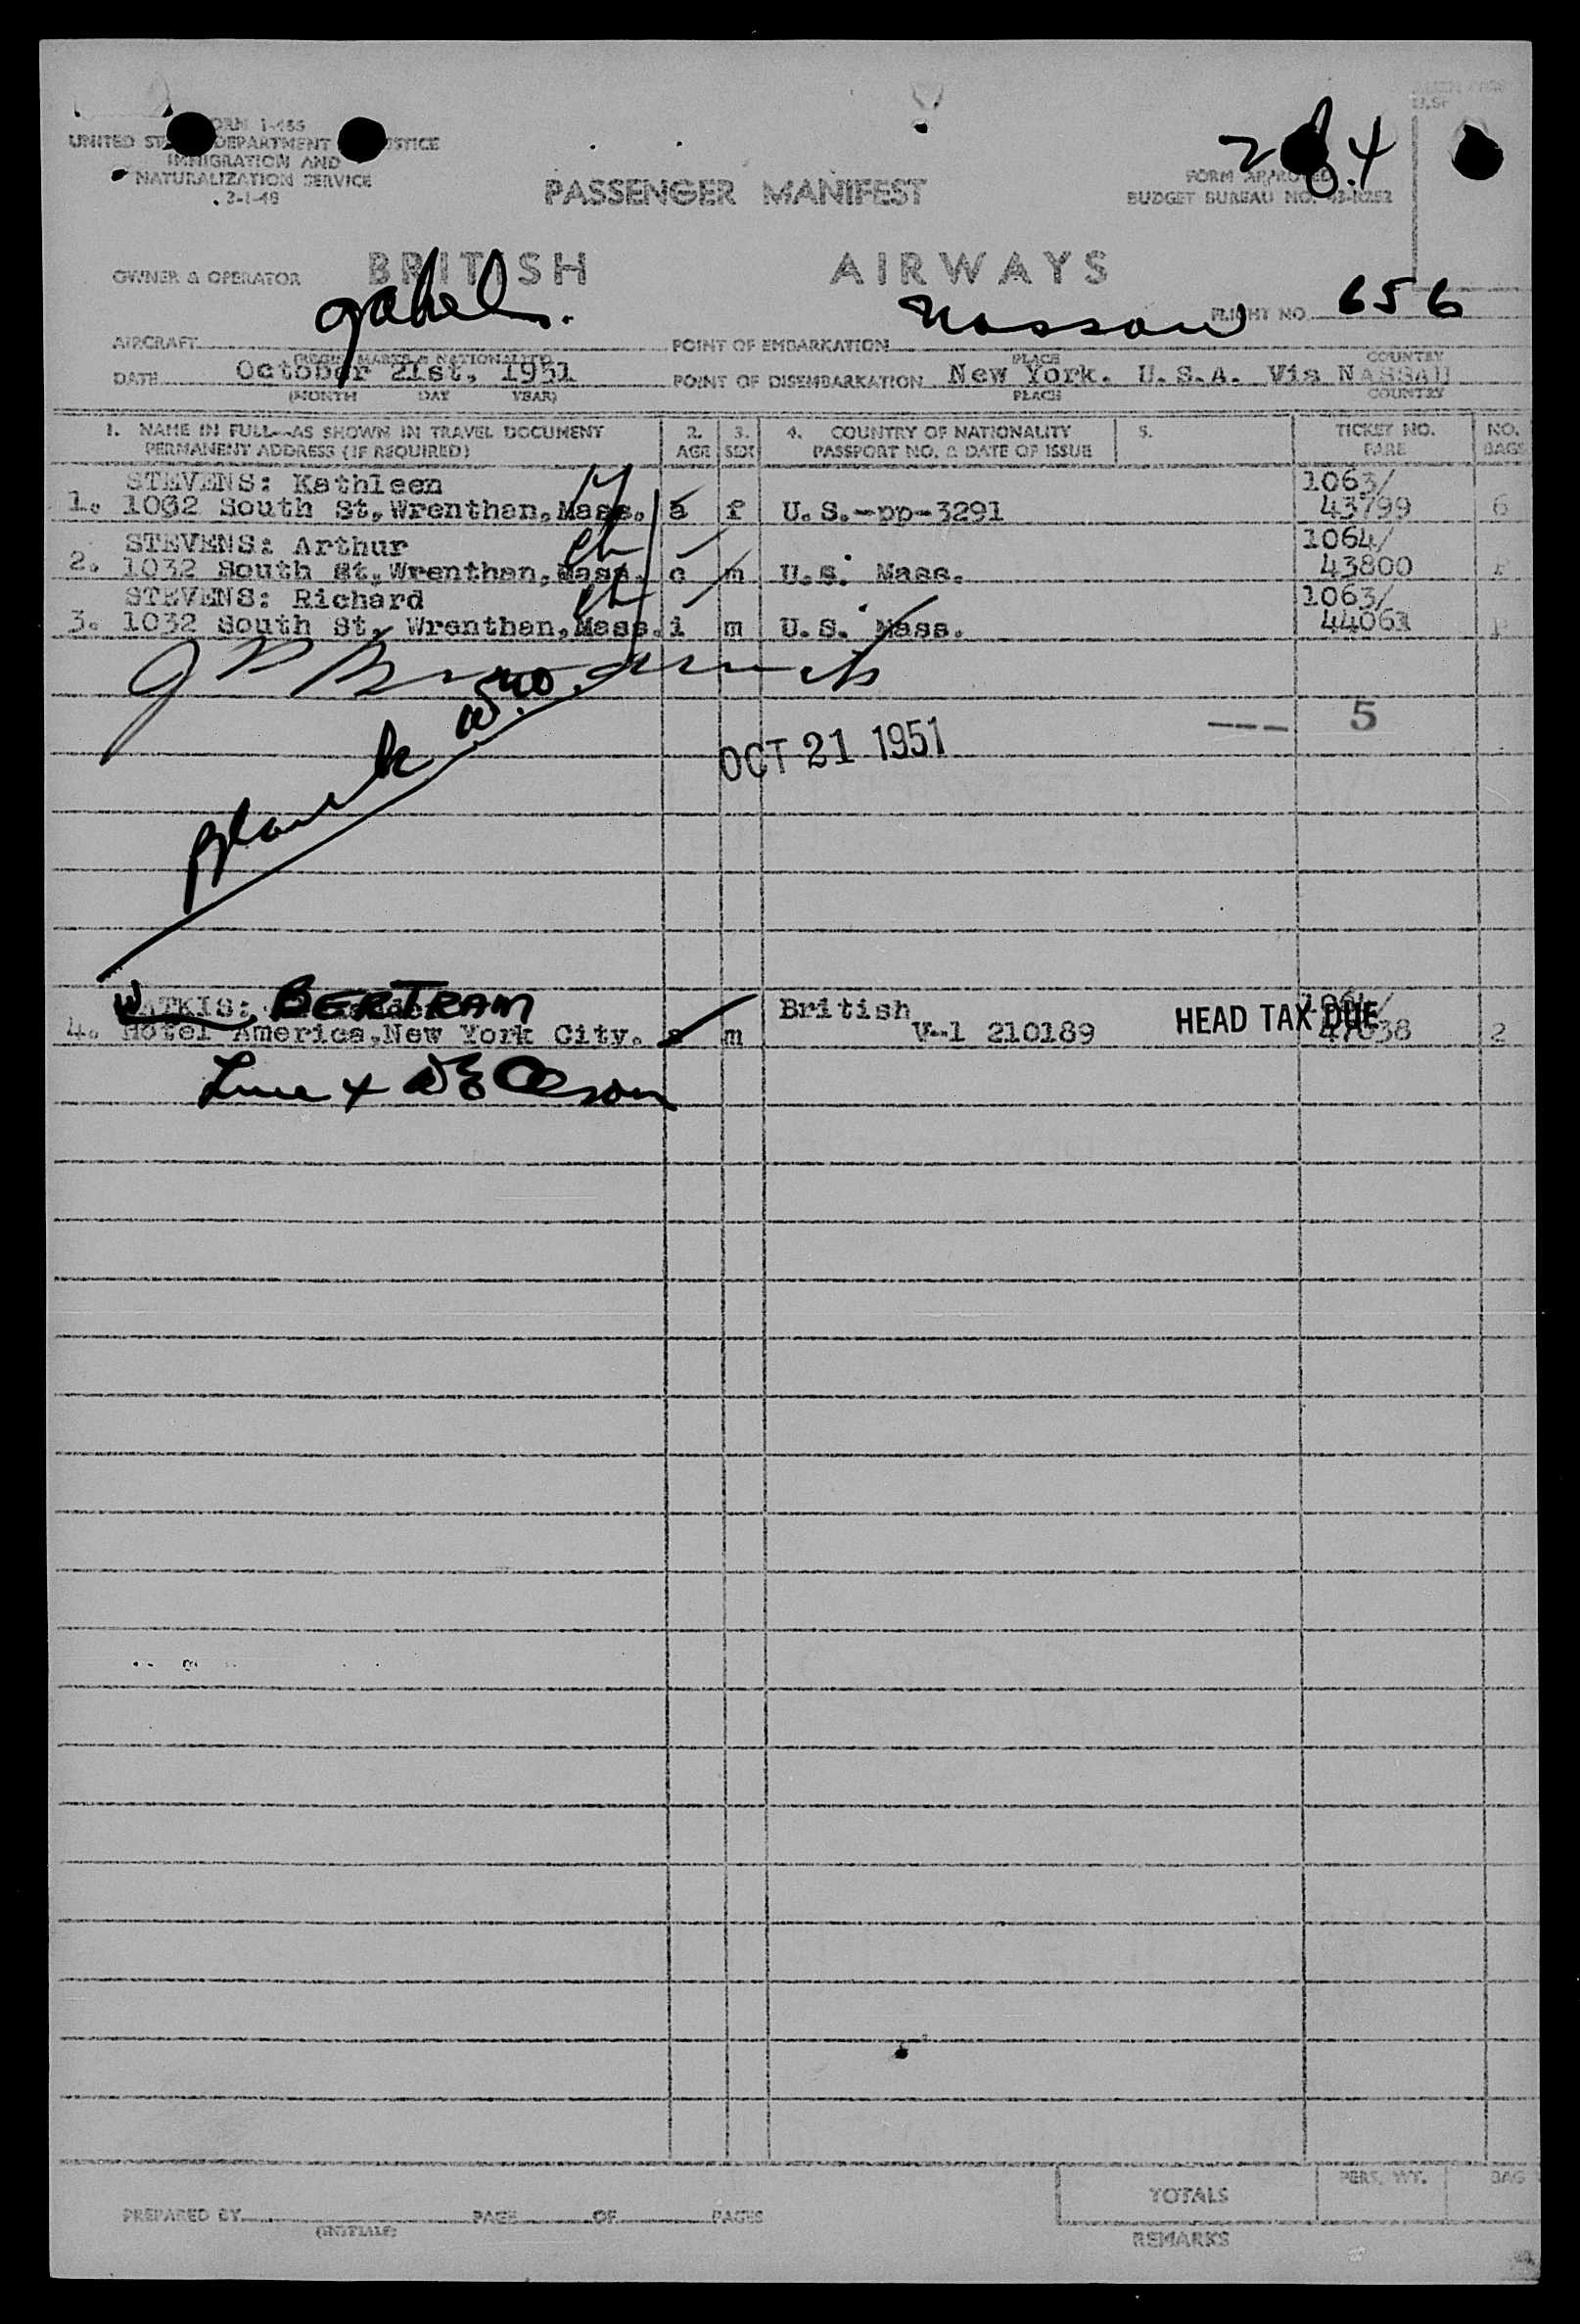 FORM I-466
UNITED DEPARTMENT
IMMIGRATION AND
NATURALIZATION SERVICE
PASSENGER MANIFEST
FORM APPROVED
BUDGET BUREAU NO.
OWNER & OPERATOR BRITISH AIRWAYS
AIRCRAFT
POINT OF EMBARKATION Nassau
FLIGHT NO. 656
PLACE COUNTRY
DATE October 21st, 1951
(MONTH DAY YEAR)
POINT OF DISEMBARKATION New York. U.S.A. Via NASSAU
PLACE COUNTRY
1. NAME IN FULL--AS SHOWN IN TRAVEL DOCUMENT
PERMANENT ADDRESS (IF REQUIRED)
2. AGE
3. SEX
4. COUNTRY OF NATIONALITY
PASSPORT NO. & DATE OF ISSUE
5.
TICKET NO.
FARE
NO. BAGS
STEVENS: Kathleen 1063/
1. South St, Wrenthan, Mass. a f U.S.-pp-3291 43799 6
STEVENS: Arthur 1064/
2. 1032 South St, Wrenthan, Mass. c m U.S. Mass. 43800
STEVENS: Richard 1063/
3. 1032 South St, Wrenthan, Mass. i m U.S. Mass.
--- 5
OCT 21 1951
Blank
WATKIS: BERTRAM British
4. Hotel America, New York City. m V-1 210189 HEAD TAX DUE 2
Line
TOTALS
PERS. WT.
BAG
PREPARED BY (INITIALS) PAGE OF PAGES
REMARKS